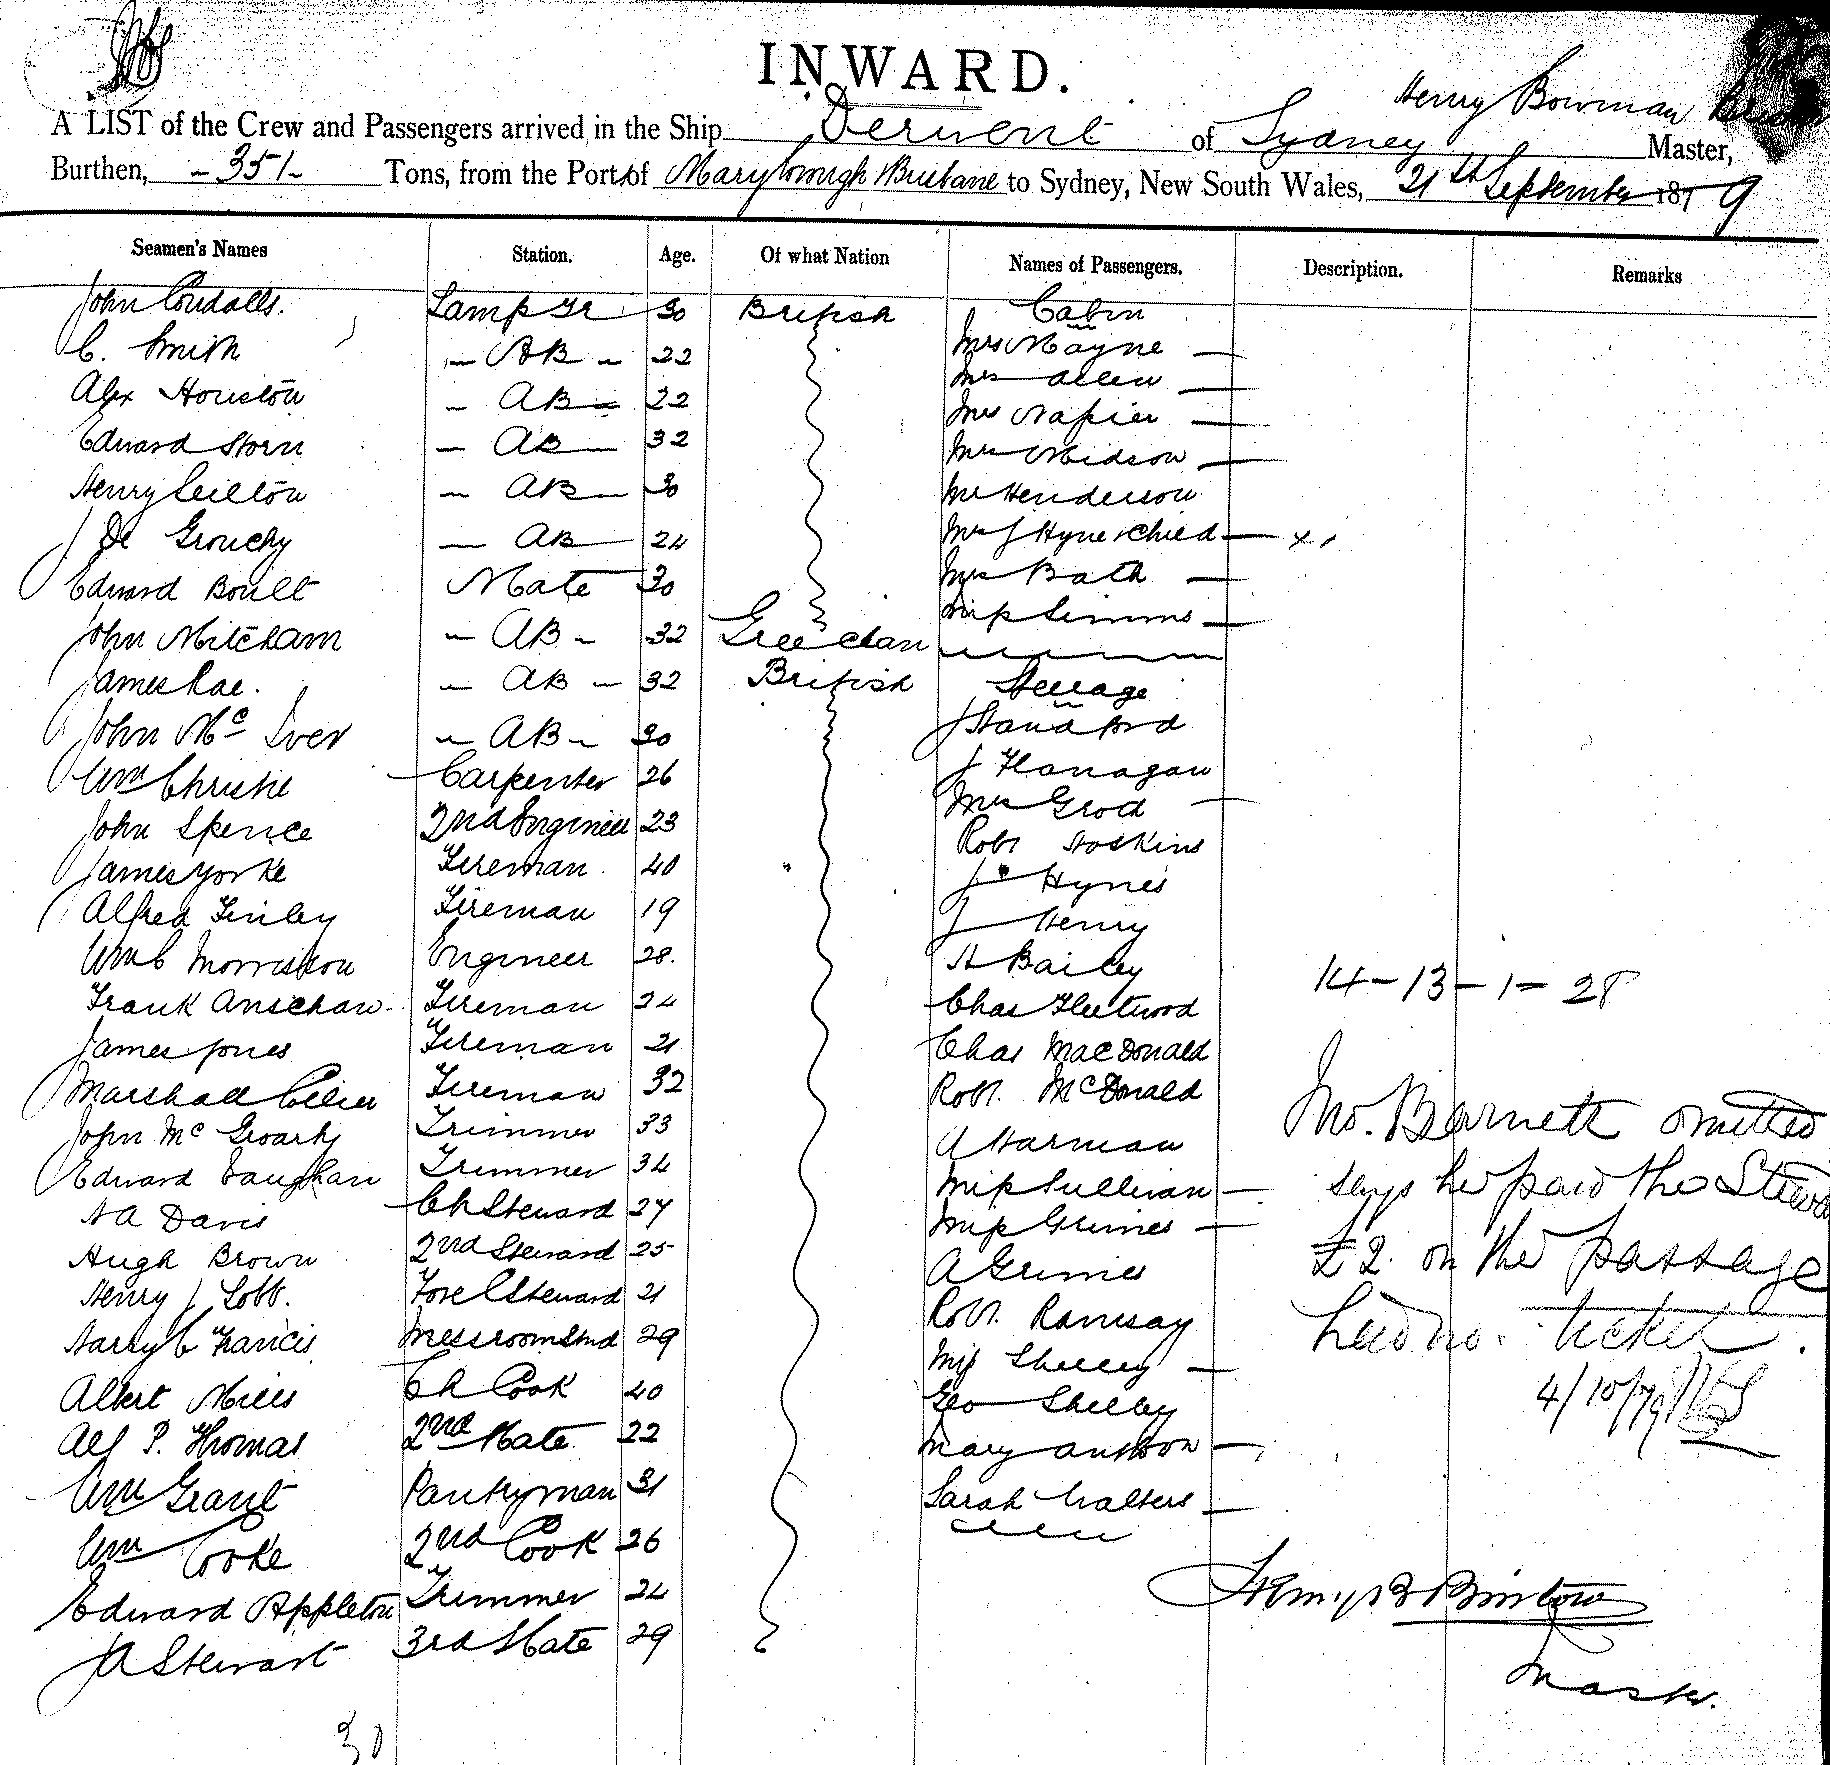 INWARD.
Henry Bowman
A LIST of the Crew and Passengers arrived in the Ship Derwent of Sydney Master,
Burthen, - 351 - Tons, from the Port of Maryborough & Brisbane to Sydney, New South Wales, 21st September 1879
Seamen's Names Station. Age. Of what Nation Names of Passengers. Description. Remarks
John Lamp Tr 30 British Cabin
C. Smith - AB - 22 Mrs Mayne -
Alex Houston - AB - 22 Mrs Allen -
Edward Storn - AB - 32 Mrs Napier -
Henry - AB - 30 Mrs Midson -
Mr Henderson
J De Grouchy - AB - 24 Mrs J Hyne & Child - x,
Edward Boult Mate 30 Mrs Bath -
Miss Simms -
John Mitcham - AB - 32 Greecian
James Rae. - AB - 32 British Steerage
John McIver - AB - 30 J Standford
Wm Christie Carpenter 26 J Flanagan
John Spence 2nd Engineer 23 Mrs Groth -
James Yorke Fireman 40 " Robt Hoskins
J Hynes
Alfred Finley Fireman 19 J Henry
Wm C Morrisson Engineer 28. H Bailey
14 - 13 - 1 - 28
Frank Fireman 24 Chas Fleetwood
James Jones Fireman 21 Chas MacDonald
Marshall Fireman 32 Robt. McDonald
John McGroarty Trimmer 33 A Harman Jno. Barnett omitted
Edward Vaughan Trimmer 34 Miss Sullivan - says he paid the
H A Davis Ch Steward 27 Miss Grimes -
Hugh Brown 2nd Steward 25 A Grimes £2. on the passage
Henry J Lobb. Fore C Steward 21 Robt. Ramsay had no ticket.
Harry C Francis Messroom Stwd 29 Miss Shelley -
Albert Mills Ch Cook 40 Geo Shelley 4/10/79
Alf P. Thomas 2nd Mate 22 Mary -
Wm Grant Pantryman 31 Sarah Walters -
Wm Cooke 2nd Cook 26
Edward Appleton Trimmer 24 Henry B
J A Stewart 3rd Mate 29
Master.
30